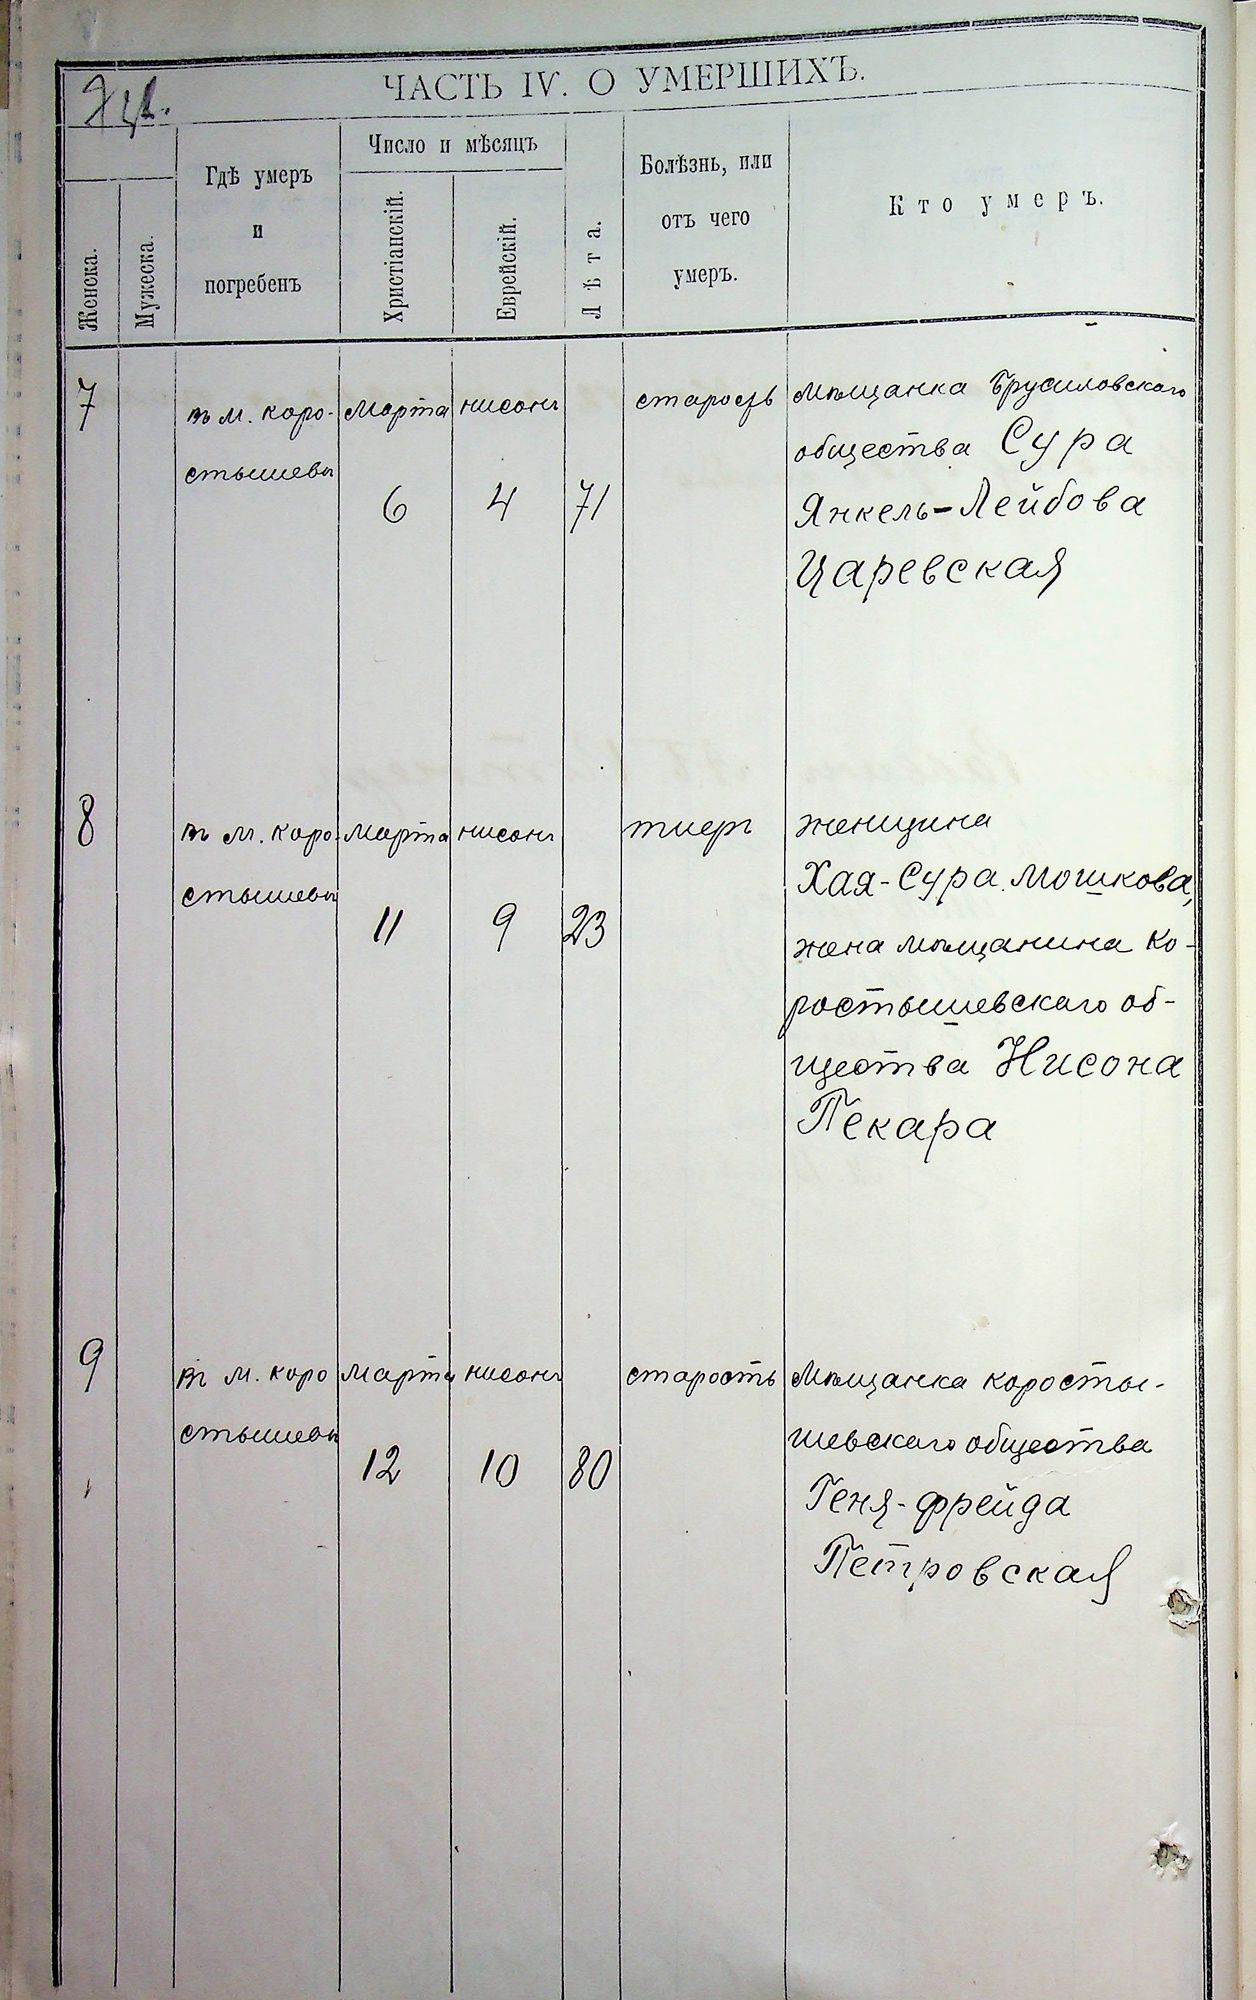 ЧАСТЬ IV. О УМЕРШИХЪ.
Женска.
Мужеска.
Гдѣ умеръ
и
погребенъ
Число и мѣсяцъ
Христіанскій.
Еврейскій.
Лѣта.
Болѣзнь, или
отъ чего
умеръ.
Кто умеръ.
7
въ м. коро-
стышевѣ
марта
6
нисонъ
4
71
старость
мѣщанка Брусиловскаго
общества Сура
Янкель-Лейбова
Царевская
8
въ м. коро-
стышевѣ
марта
11
нисонъ
9
23
женщина
Хая-Сура Мошкова,
жена мѣщанина Ко-
ростышевскаго об-
щества Нисона
Пекара
9
въ м. коро
стышевѣ
марта
12
нисонъ
10
80
старость
Мѣщанка коросты-
шевскаго общества
Геня-Фрейда
Петровская